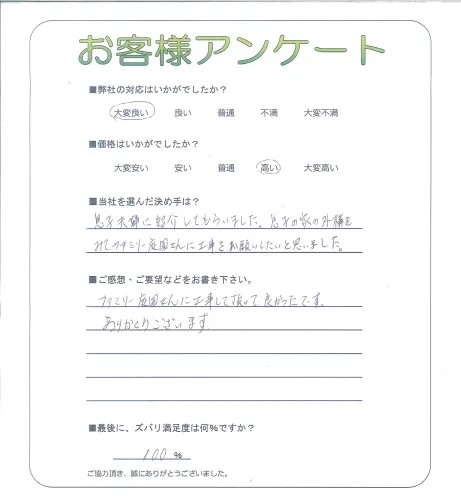 お客様アンケート
■弊社の対応はいかがでしたか？
大変良い 良い 普通 不満 大変不満
■価格はいかがでしたか？
大変安い 安い 普通 高い 大変高い
■当社を選んだ決め手は？
息子夫婦に紹介してもらいました。息子の家の外構を
みて、ファミリー庭園さんに工事をお願いしたいと思いました。
■ご感想・ご要望などをお書き下さい。
ファミリー庭園さんに工事して頂いて良かったです。
ありがとうございます
■最後に、ズバリ満足度は何%ですか？
100 %
ご協力頂き、誠にありがとうございました。